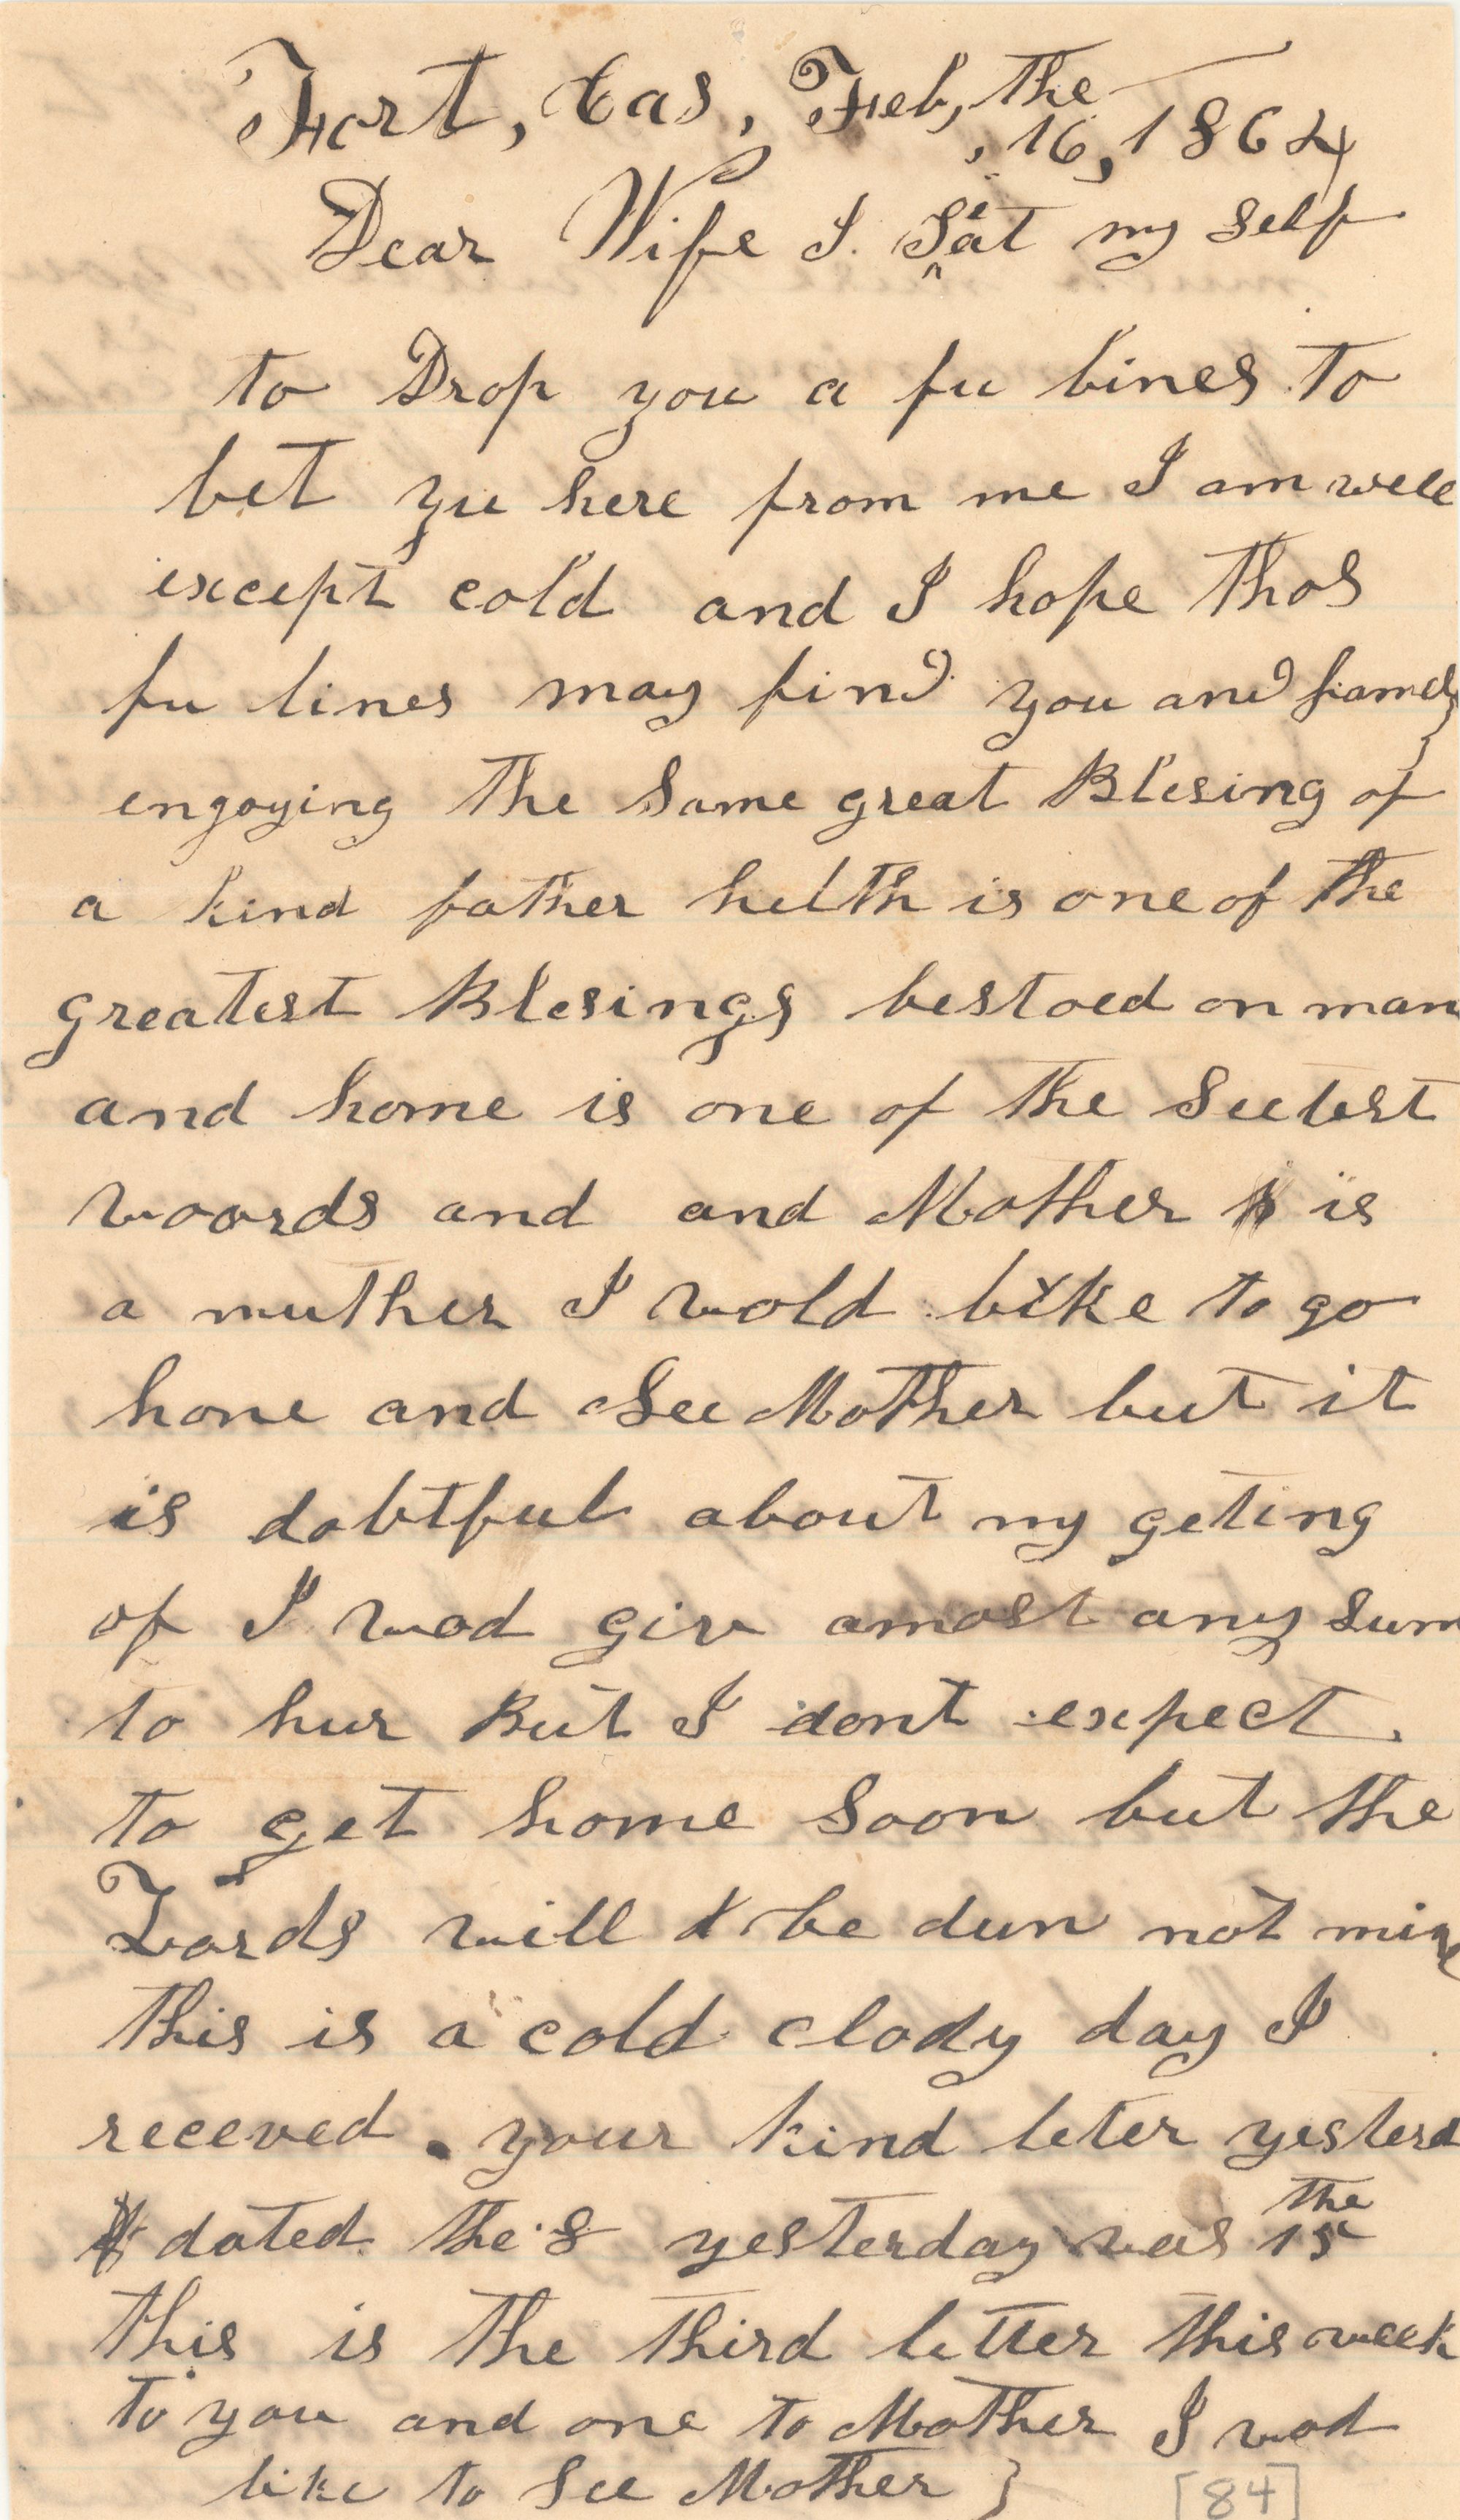 Fort, Cas, Feb, the 16, 1864
Dear Wife I Seat my self
to Drop you a fu lines to
let yu here from me I am well
except cold and I hope thos
fu lines may find you and famely
engoying the same great Blesing of
a kind father helth is one of the
greatest Blesings bestoed on man
and home is one of the Seetest
woords and and Mother is
a muther I wold like to go
home and See Mother but it
is dobtful about my geting
of I wod giv amost any sum
to hur But I dont expect
to get home soon but the
Lords will be dun not mine
this is a cold clody day I
receved your kind leter yesterd
dated the 8 yesterday was the 15
this is the third letter this week
to you and one to Mother I wod
like to See Mother }
[84]